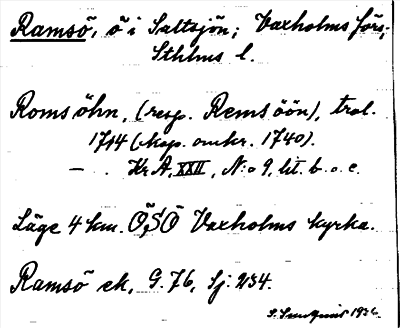 Ramsö, ö i Saltsjön; Vaxholms förs;
Sthlms l.
Romsöhn, (resp. Remsöön), trol.
1714 (kop. omkr. 1740).
— . Kr A, XXII, N:o 9, lit. b o. c.
Läge 4 km. Ö,SÖ Vaxholms kyrka.
Ramsö ek, G. 76, Sj. 234.
1936.